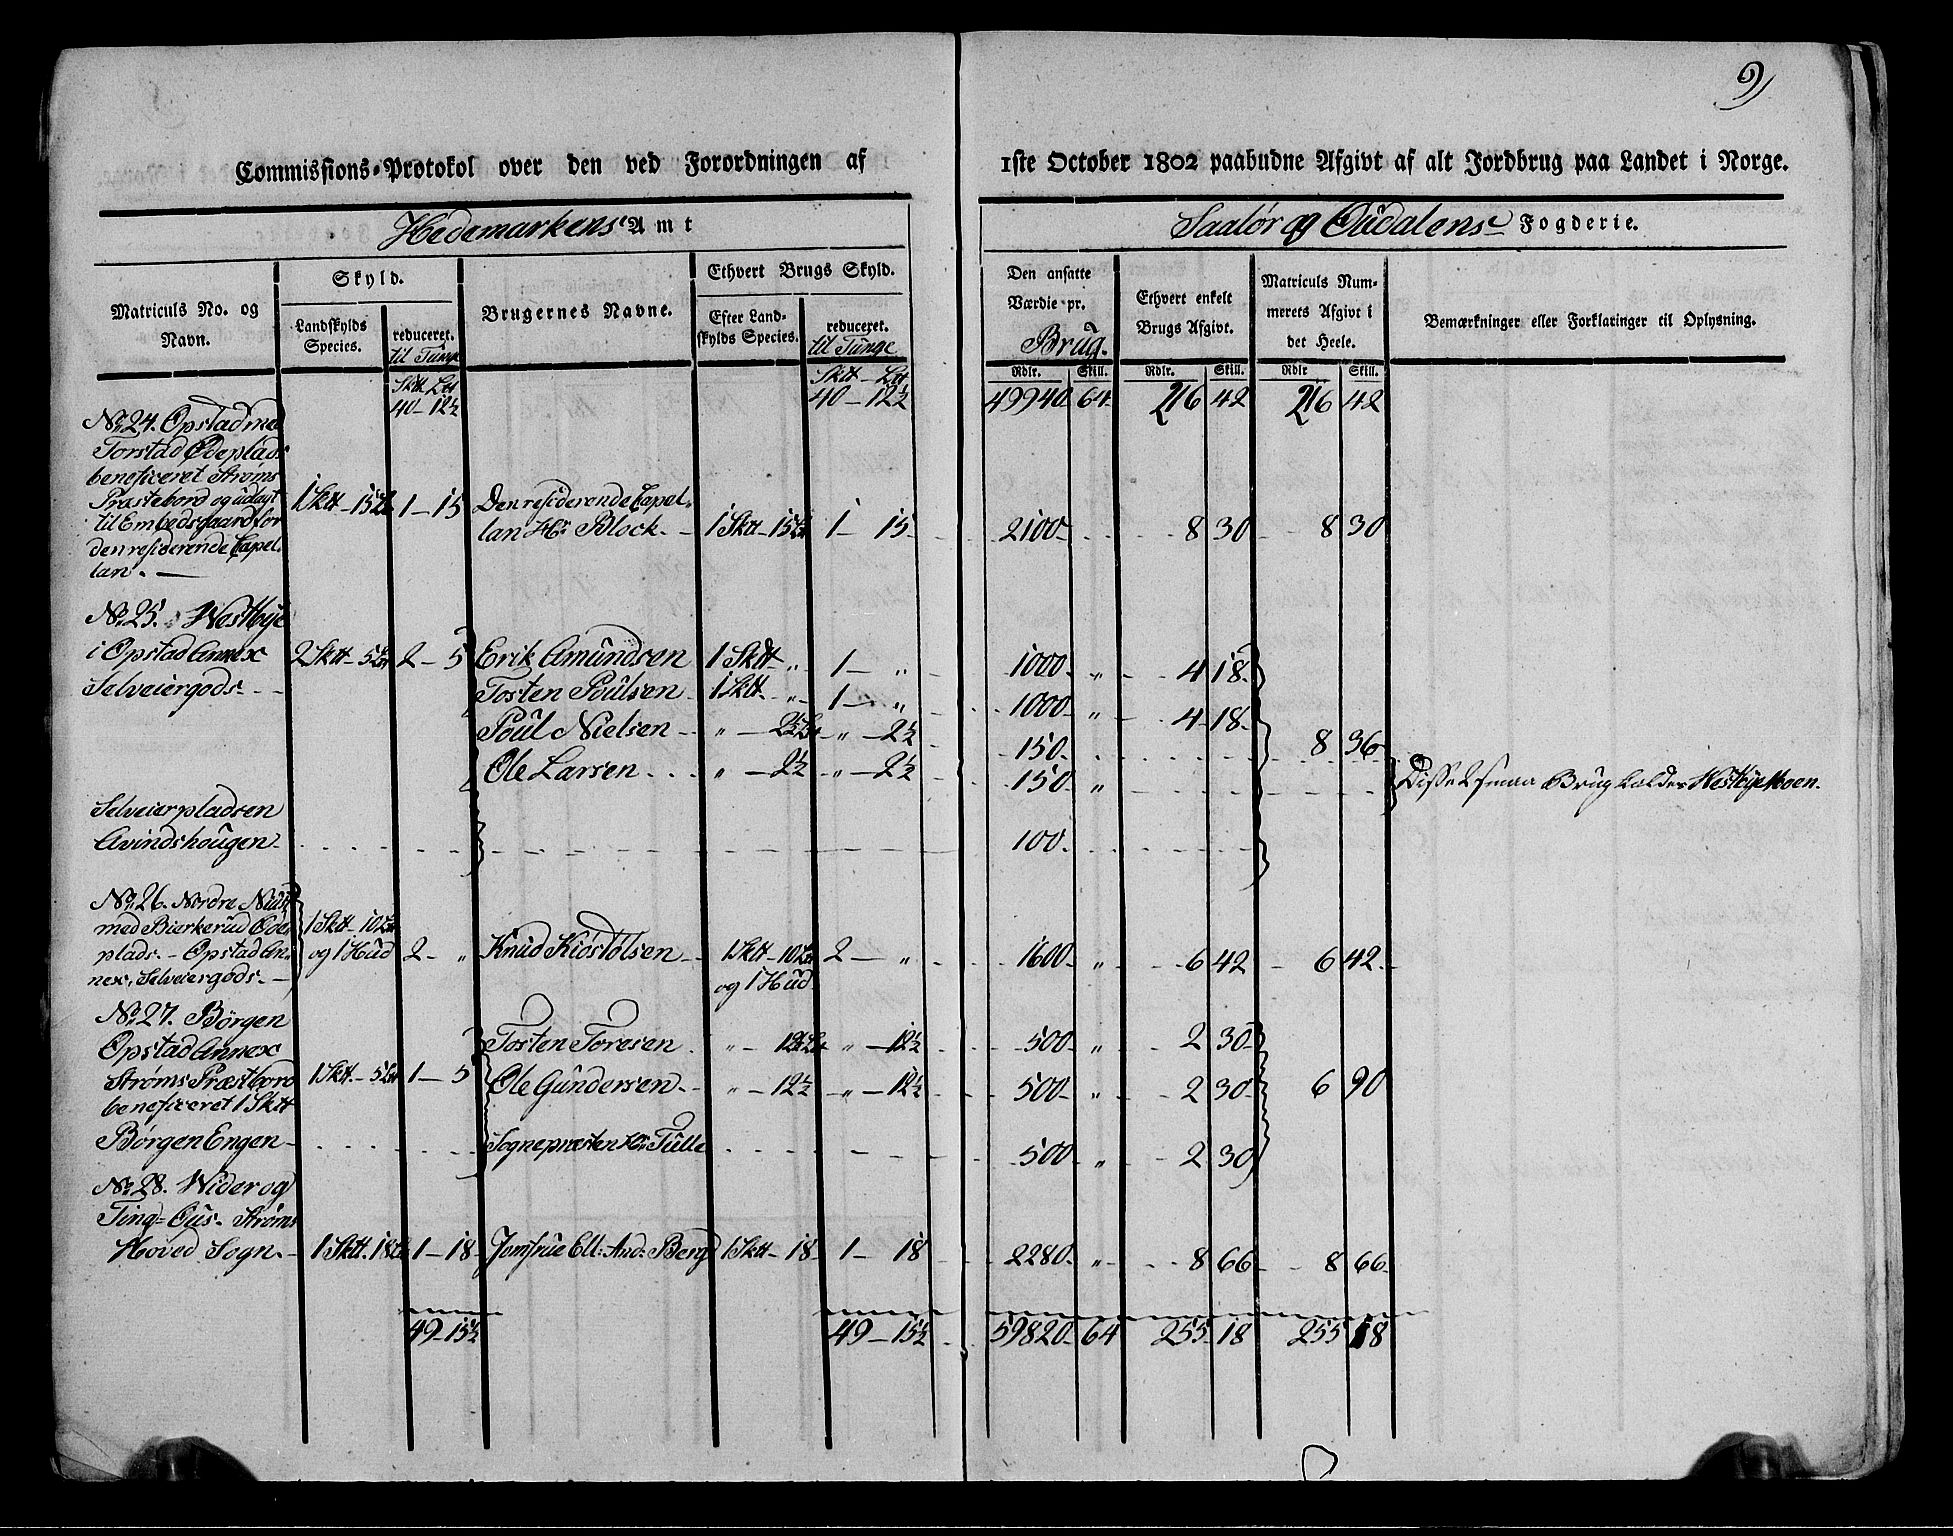 9
Commissions-Protokol over den ved Forordningen af 1ste October 1802 paabudne Afgivt af alt Jordbrug paa Landet i Norge.
Hedemarkens Amt
Saalør og Oudalens Fogderie.
Matriculs No. og Navn.
Skyld.
Landskylds Species.
reduceret. til Tunge
Brugernes Navne.
Ethvert Brugs Skyld.
Efter Landskylds Species.
reduceret. til Tunge
Den ansatte Værdie pr. Brug.
Ethvert enkelt Brugs Afgivt.
Matriculs Nummerets Afgivt i det Heele.
Bemærkninger eller Forklaringer til Oplysning.
Rdlr. Skill. Rdlr. Skill. Rdlr Skill.
Sktt - Lett Sktt - Lett
40 - 12½ 40 - 12½ 49940 64 216 42 216 42
No 24. Opstad med
Torstad Ødeplads
beneficeret Strøms
Præstebord og udlagt 1 Sktt - 15 1 - 15 Den residerende Capel-
til Embedsgaard for lan Hr Block. - 1 Sktt - 15 1 - 15 2100 8 30 8 30
den residerende Capel-
lan. -
No 25. Westbye
i Opstad Annex 2 Sktt - 5 2 - 5 Erik Amundsen 1 Sktt - „ 1 - „ 1000 „ 4 18
Selveiergods. - - Tosten Poulsen 1 Sktt. „ 1 - „ 1000 „ 4 18
Poul Nielsen „ - 2½ „ - 2½ 150 8 36
Ole Larsen „ - 2½ „ - 2½ 150 „ Disse 2 smaa Brug kaldes Westbye Moen.
Selveierpladsen
Avindshougen 100
No 26. Nordre
med Bierkerud Øde- 1 Sktt - 10
plads. - Opstad An- og 1 Hud 2 - „ Knud Kiøstolsen 1 Sktt - 10 2 - „ 1600 „ 6 42 6 42
nex, Selveiergods. - og 1 Hud
No 27. Börgen
Opstad Annex Tosten Toresen „ - 12½ „ - 12½ 500 „ 2 30
Strøms Præstbord 1 Sktt. - 5 1 - 5 Ole Gundersen „ - 12½ „ - 12½ 500 „ 2 30 6 90
beneficeret 1 Sktt
Börgen Engen Sognepræsten Hr Tulle 500 „ 2 30
No 28. Wider og
Ting = Ous. Strøms
Hoved Sogn. - 1 Sktt. 18 1 - 18 Jomfrue Ell: And: Berg 1 Sktt - 18 1 - 18 2280 „ 8 66 8 66
49 - 15½ 49 - 15½ 59820 64 255 18 255 18